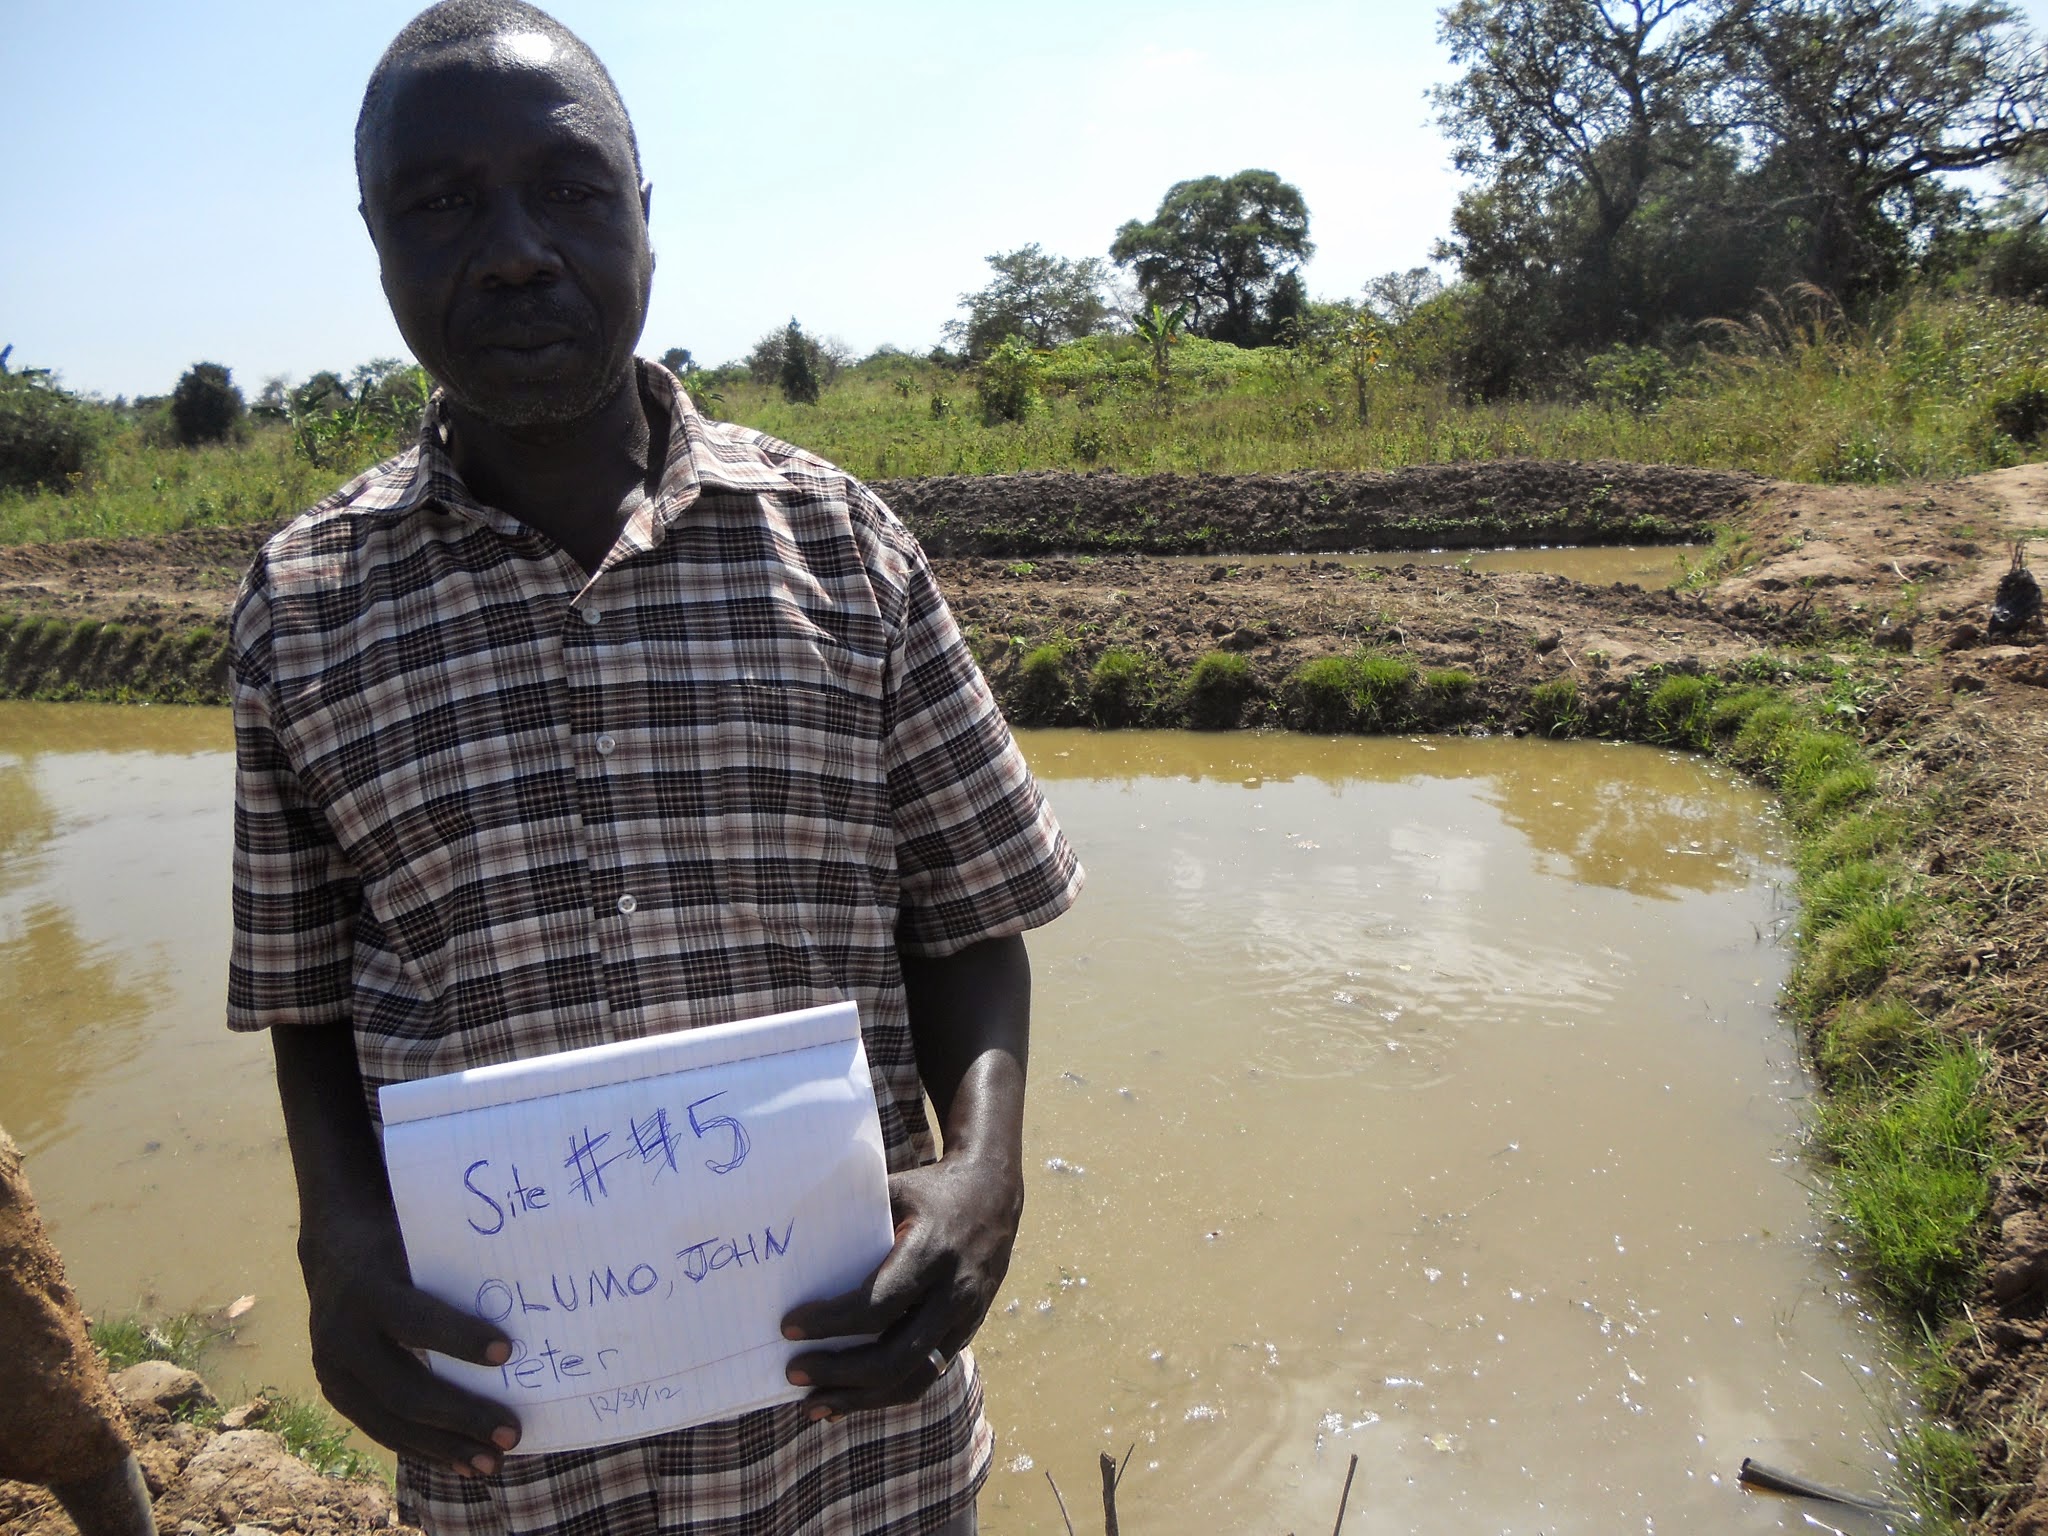 Site #45
OLUMO, JOHN
Peter
12/31/12